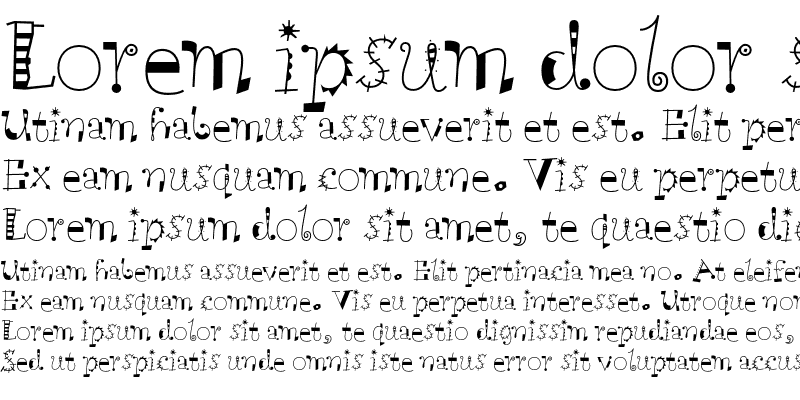 Lorem ipsum dolor s
Utinam habemus assueverit et est. Elit per
Ex eam nusquam commune. Vis eu perpetu
Lorem ipsum dolor sit amet, te quaestio di
Utinam habemus assueverit et est. Elit pertinacia mea no. At eleifen
Ex eam nusquam commune. Vis eu perpetua interesset. Utroque non
Lorem ipsum dolor sit amet, te quaestio dignissim repudiandae eos,
Sed ut perspiciatis unde omnis iste natus error sit voluptatem accus